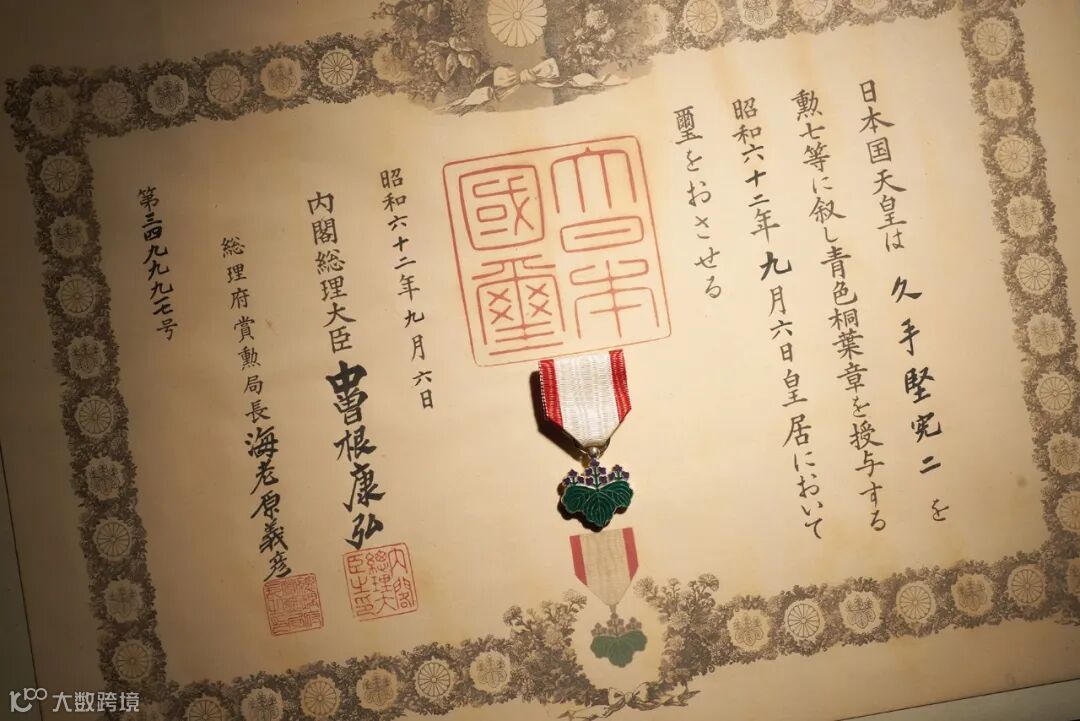 日本国天皇は久手堅宪二を
勲七等に叙し青色桐葉章を授与する
昭和六十二年九月六日皇居において
璽をおさせる
大日本
國璽
昭和六十二年九月六日
内閣総理大臣中曽根康弘
内閣
総理大
臣之印
総理府賞勲局長海老原義彦
第三四九九九七号
大数跨境